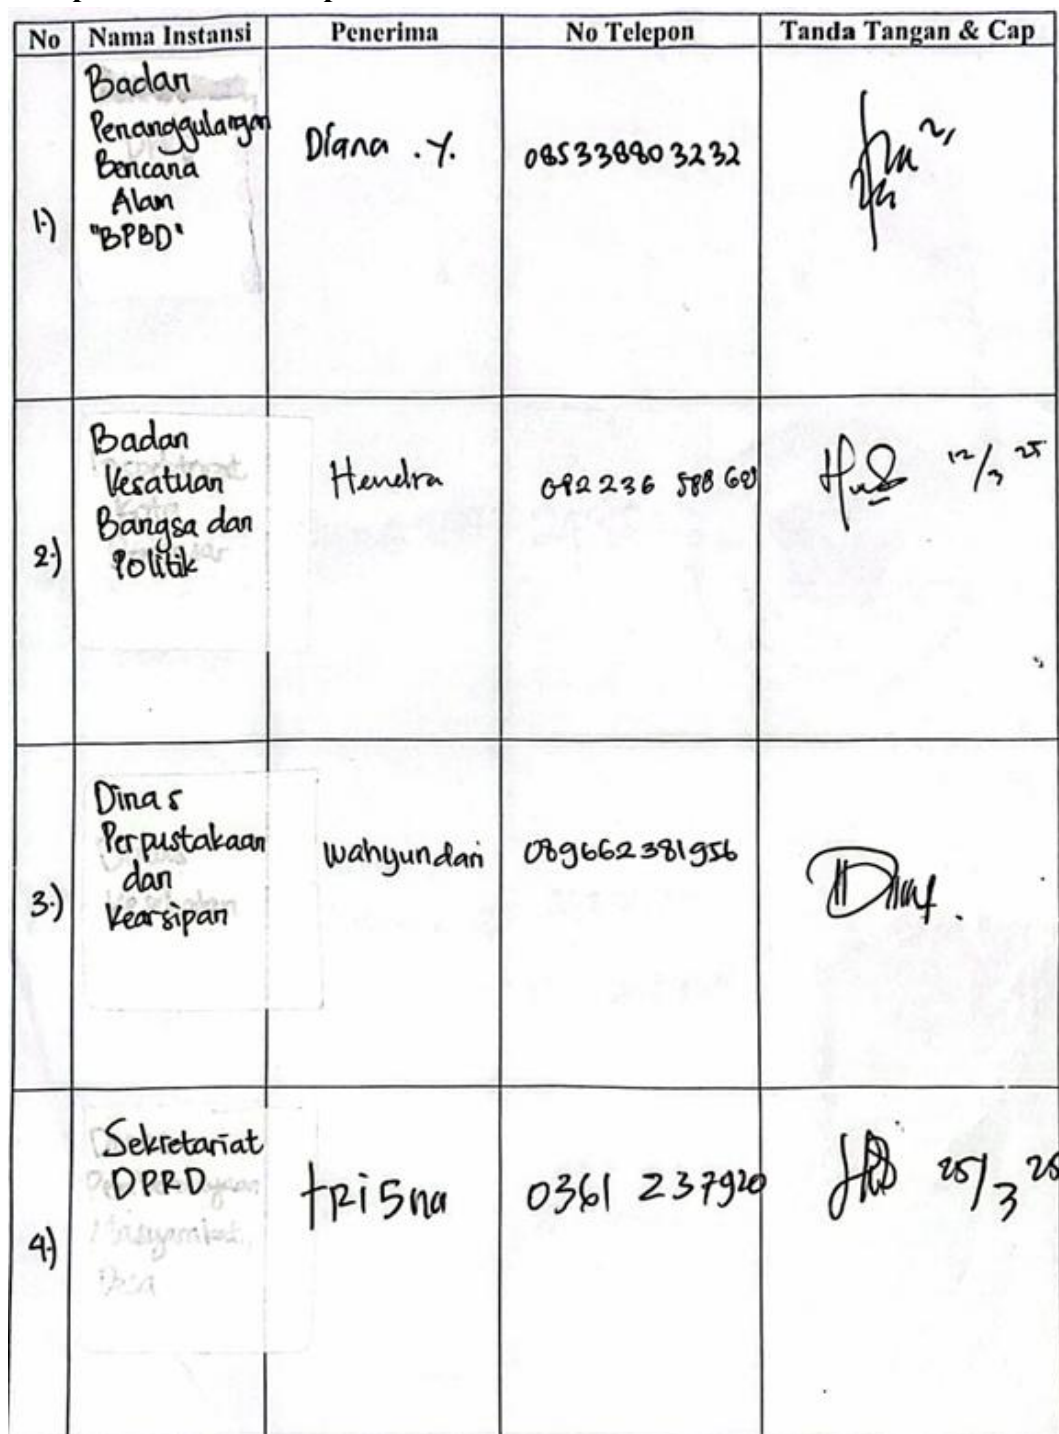 No Nama Instansi Penerima No Telepon Tanda Tangan & Cap
1.) Badan
Penanggulangan
Bencana
Alam
"BPBD"
Diana . Y. 085338803232
2.) Badan
Kesatuan
Bangsa dan
Politik
Hendra 082236 588 681 12/3 25
3.) Dinas
Perpustakaan
dan
Kearsipan
Wahyundari 089662381956
4.) Sekretariat
DPRD
trisna 0361 237920 25/3 25